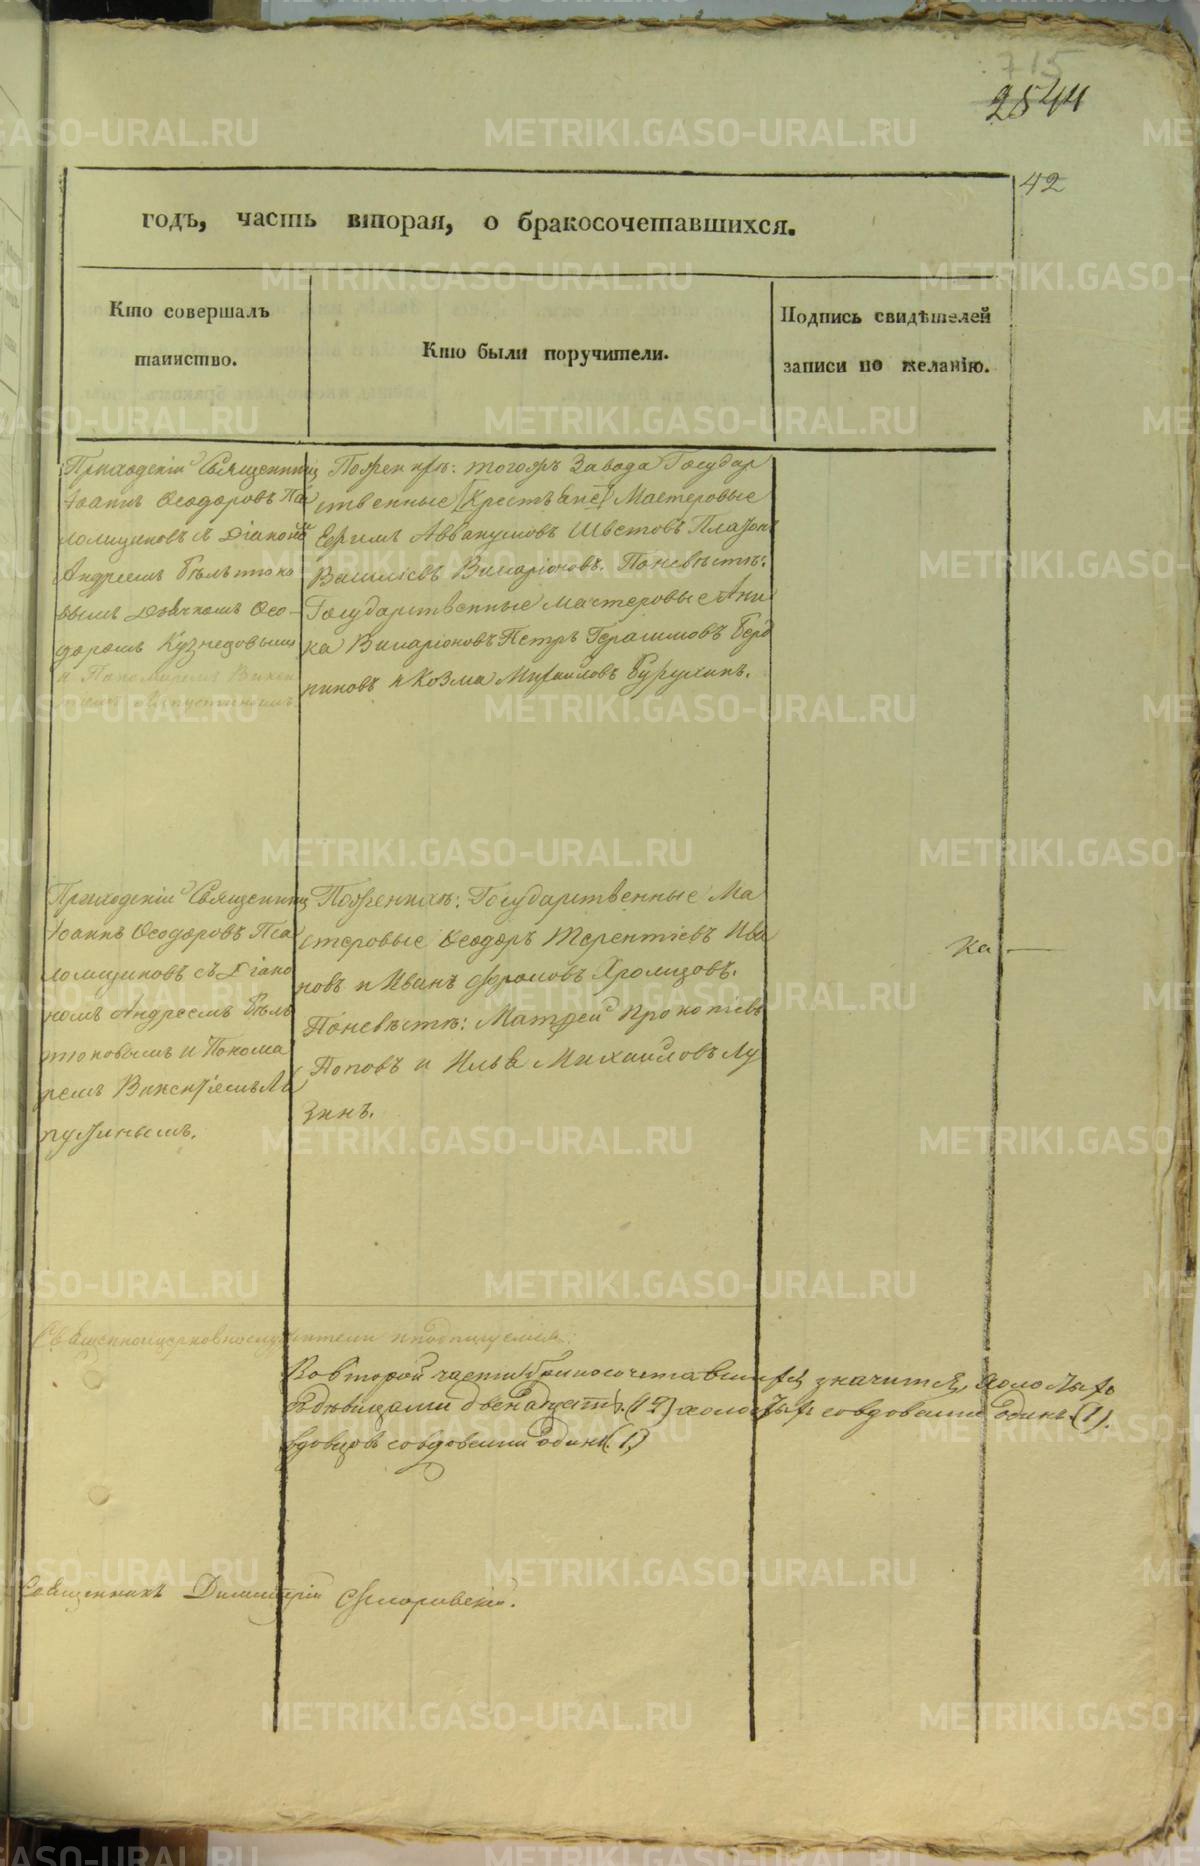 715
2844
42
годъ, часть вторая, о бракосочетавшихся.
Кто совершалъ
таинство.
Кто были поручители.
Подпись свидѣтелей
записи по желанію.
Приходскій Священникъ
Іоаннъ Ѳеодоровъ Пса
ломщиковъ съ Діакономъ
Андреемъ Бѣльтюко
вымъ Дьячкомъ Ѳео-
доромъ Кузнецовымъ
и Пономаремъ Викен
тіемъ
По женихѣ: тогожъ Завода Государ
ственные [Крестьяне] Мастеровые
Ефимъ Аввакумовъ Швецовъ Платонъ
Василіевъ Иларіоновъ. По невѣстѣ:
Государственные Мастеровые Ани
ка Иларіоновъ Петръ Герасимовъ Берд
никовъ и Козма Михаиловъ Бурухинъ.
Приходскій Священникъ
Іоаннъ Ѳеодоровъ Пса
ломщиковъ съ Діако
номъ Андреемъ Бѣль
тюковымъ и Понома
ремъ Викентіемъ Ла
путинымъ.
По женихѣ: Государственные Ма
стеровые Ѳеодоръ Терентіевъ Ива
новъ и Иванъ Фроловъ Хромцовъ.
По невѣстѣ: Матѳей Прокопіевъ
Поповъ и Илья Михаиловъ Лу
зинъ.
ка —
Священноицерковнослужители подписуемся:
Во второй части бракосочетавшихся значится, холостыхъ
съ дѣвицами двенадцать (12) холостыхъ со вдовами одинъ (1).
вдовцовъ со вдовами одинъ (1)
Священникъ Димитрій